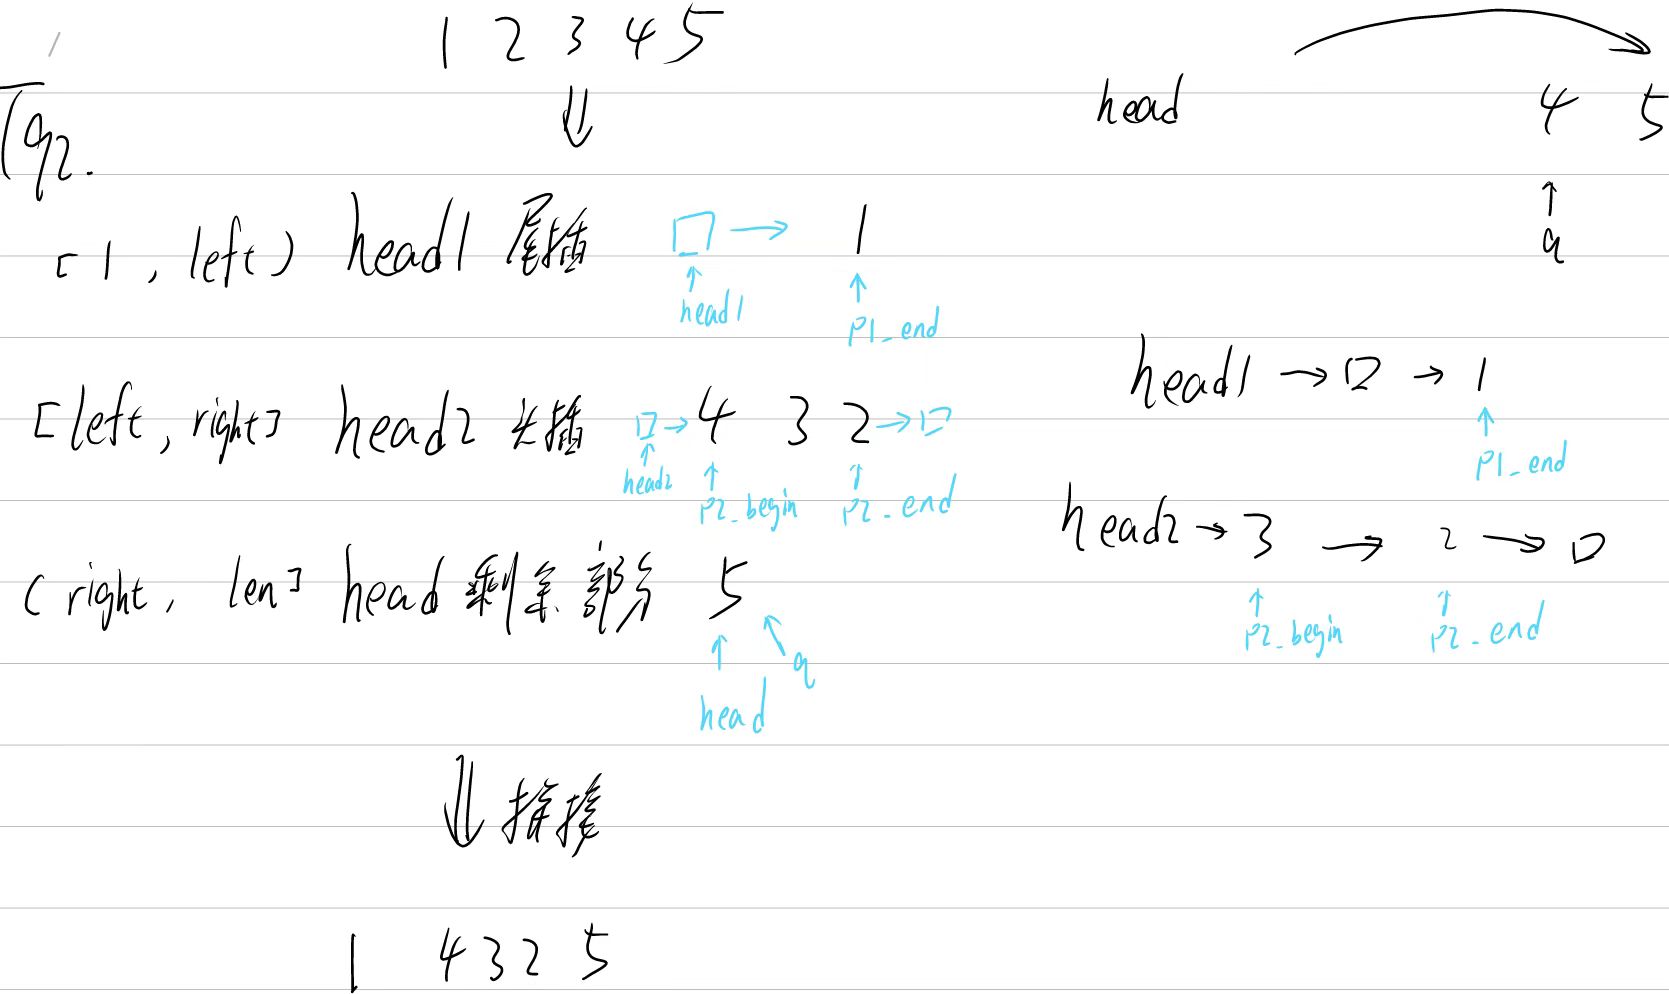 1 2 3 4 5
T92.
[1, left) head1 尾插 □ → 1
head1
p1_end
[left, right] head2 头插 □ → 4 3 2 → □
head2
p2_begin
p2_end
(right, len] head 剩余部分 5
head
q
拼接
1 4 3 2 5
head 4 5
q
head1 → □ → 1
p1_end
head2 → 3 → 2 → □
p2_begin
p2_end